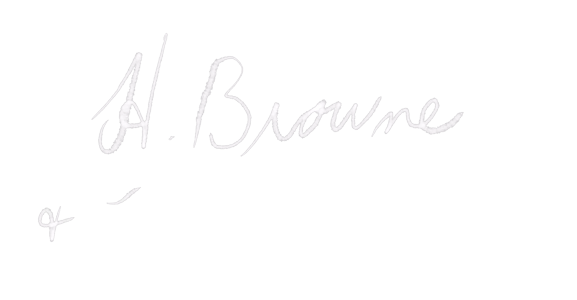 H. Browne